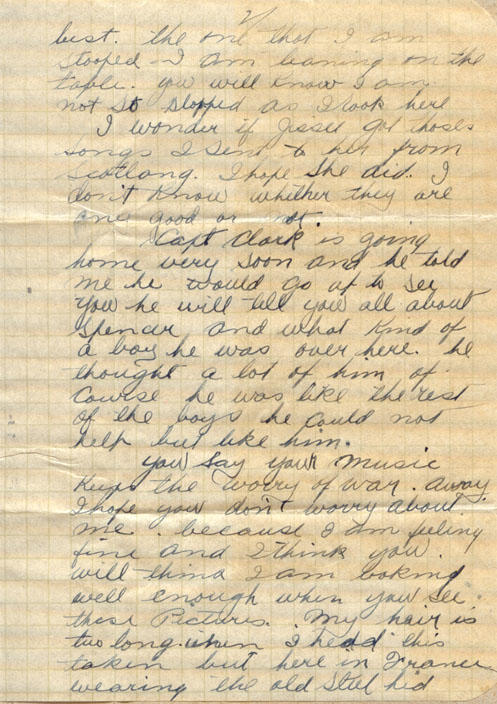 2/
best. the one that I am
stooped I am leaning on the
table. you will know I am
not so stopped as I look here
I wonder if Jessie got those
songs I sent to her from
Scotland. I hope she did. I
don't know whether they are
any good or not.
Capt Clark is going
home very soon and he told
me he would go up to see
you he will tell you all about
Spencer and what kind of
a boy he was over here. he
thought a lot of him of
course he was like the rest
of the boys he could not
help but like him.
you say your music
keeps the worry of war. away.
I hope you don't worry about
me. because I am feeling
fine and I think you
will think I am looking
well enough when you see
these Pictures. My hair is
two long when I had this
taken but here in France
wearing the old steel lid